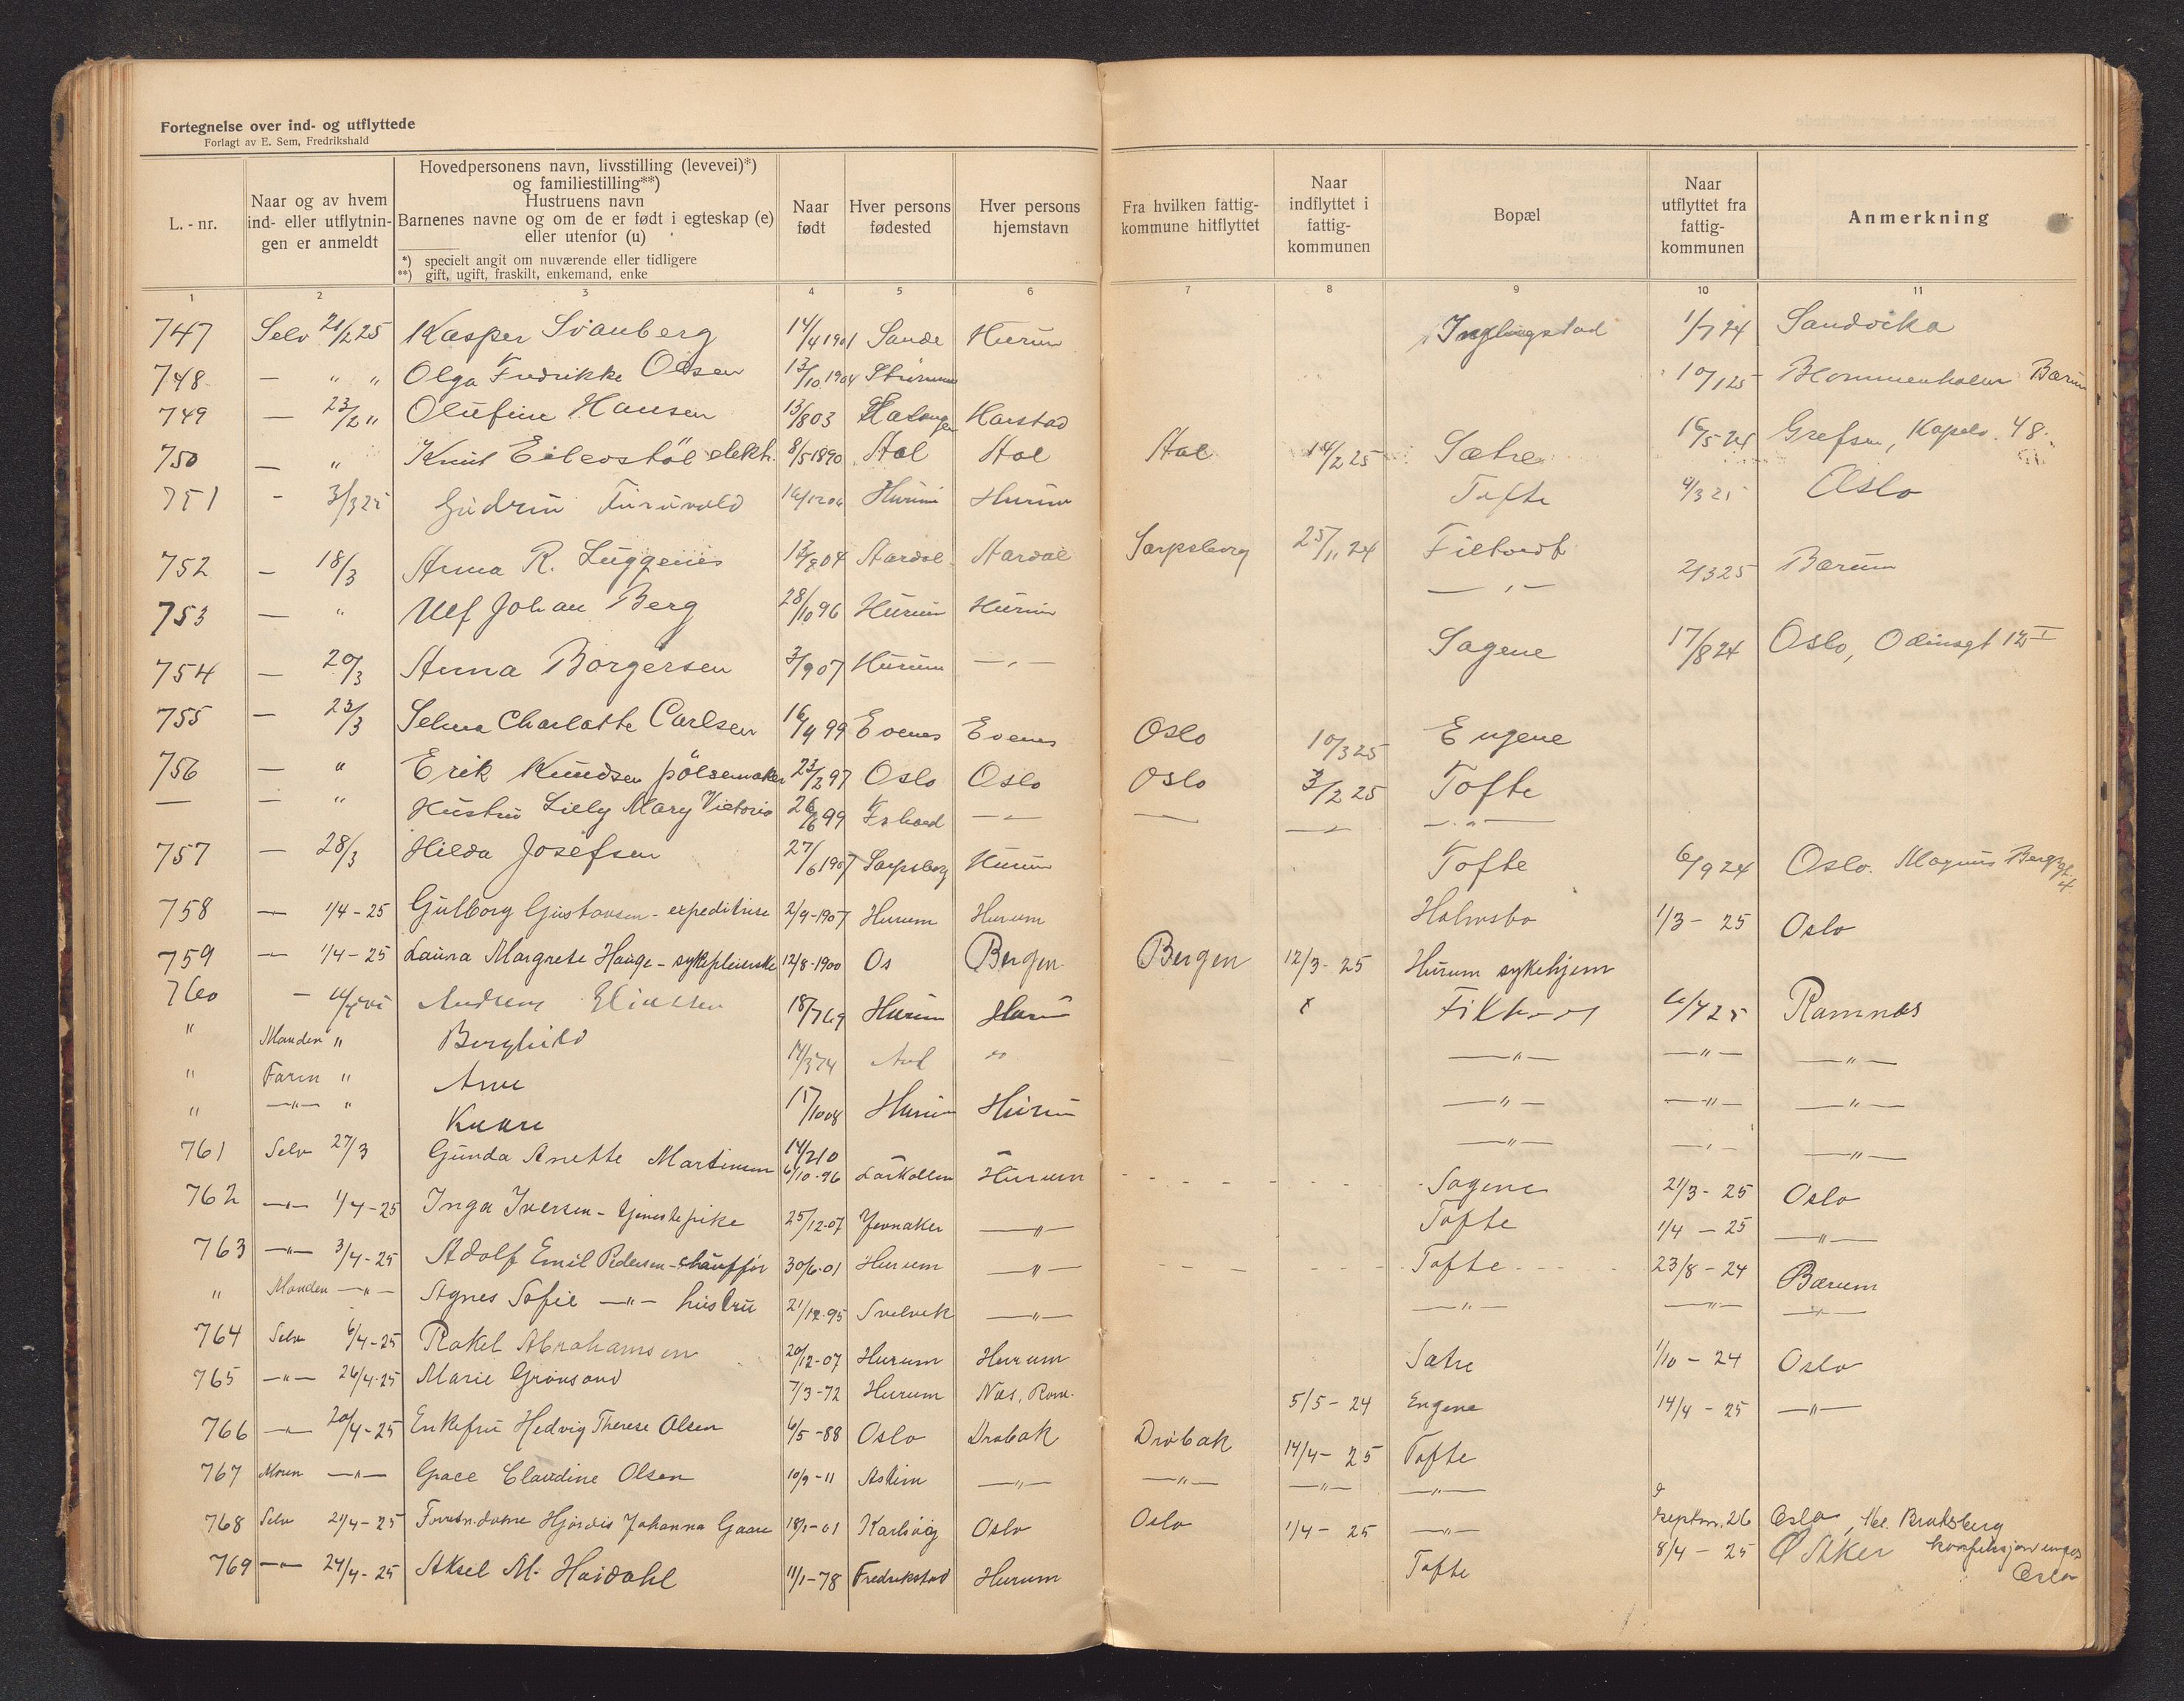 Fortegnelse over ind- og utflyttede
Forlagt av E. Sem, Fredrikshald
L. - nr.
Naar og av hvem
ind- eller utflytnin-
gen er anmeldt
Hovedpersonens navn, livsstilling (levevei)*)
og familiestilling**)
Hustruens navn
Barnenes navne og om de er født i egteskap (e)
eller utenfor (u)
*) specielt angit om nuværende eller tidligere
**) gift, ugift, fraskilt, enkemand, enke
Naar
født
Hver persons
fødested
Hver persons
hjemstavn
Fra hvilken fattig-
kommune hitflyttet
Naar
indflyttet i
fattig-
kommunen
Bopæl
Naar
utflyttet fra
fattig-
kommunen
Anmerkning
1 2 3 4 5 6 7 8 9 10 11
747 Selv 21/2 25 Kasper Svanberg 14/4 1901 Sande Hurum 1/7 24 Sandvika
748 — " " Olga Fredrikke Olsen 13/10 1904 Strømmen 10/1 25 Blommenholm Bærum
749 — 23/2 " Olufine Hansen 13/8 03 Harstad 16/5 24 Grefsen, Kapelv. 48.
750 — " Knut elektr. 8/5 1890 Aal Aal Aal 14/2 25 Sætre
751 - 3/3 25 Gudrun Furuvold Hurum Hurum Tofte 4/3 25 Oslo
752 — 18/3 Anna R. 04 Aardal Aardal Sarpsborg 25/11 24 Filtvedt
753 — " Ulf Johan Berg 28/10 96 Hurum Hurum — " — 2/3 25 Bærum
754 — 20/3 Anna Borgersen 3/9 07 Hurum — " — Sagene 17/8 24 Oslo, Odinsgt 12 I
755 — 23/3 Selma Charlotte Carlsen 16/4 99 Evenes Evenes Oslo 10/3 25 Engene
756 — " Erik Knudsen pölsemaker 23/2 97 Oslo Oslo Oslo 3/2 25 Tofte
— — " Hustru Lilly Mary Victoria 26/6 99 — " — — — " — — " —
757 — 28/3 Hilda Josefsen 27/6 1907 Sarpsborg Hurum Tofte 6/9 24 Oslo. Magnus Bergsgt. 4
758 — 1/4 - 25 Gulborg Gustavsen - expeditrise 2/9-1907 Hurum Hurum Holmsbo 1/3 - 25 Oslo
759 — 1/4 - 25 Laura Margrete Hauge - sykepleierske 12/8-1900 Os Bergen Bergen 12/3 - 25 Hurum sykehjem
760 — Andreas 18/7 69 Hurum Hurum 6/4 25 Ramnes
" Manden " Borghild 14/3 74 " — " — — " — — " —
" Faren " Arne 15/10 08 Hurum Hurum — " — — " — — " —
" — " — " Kaare 14/2 10 — " — — " — — " —
761 Selv 27/3 Gunda Anette Martinsen 6/10-96 Larkollen Hurum Sagene 21/3 - 25 Oslo
762 — " — 1/4-25 Inga Iversen - tjenestepike 25/12-07 Jevnaker — " — Tofte 1/4 - 25 — " —
763 — " — 3/4-25 Adolf Emil Pedersen - chauffør 30/6-01 Hurum — " — Tofte 23/8 - 24 Bærum
" Manden — " — Agnes Sofie — " — hustru 21/12-95 Svelvik — " — — " — — " — — " —
764 Selv 6/4-25 Rakel Abrahamsen 20/12-07 Hurum Hurum Sætre 1/10 - 24 Oslo
765 — " — 26/4-25 Marie Grønsand 7/3-72 Hurum Nes, Rom. 5/5 - 24 Engene 14/4 - 25 — " —
766 — " — 20/4-25 Enkefru Hedvig Therese Olsen 6/5-88 Oslo Drøbak Drøbak 14/4 - 25 Tofte
767 Moren — " — Grace Claudine Olsen 10/9-11 Askim — " — — " — — " — — " —
768 Selv 21/4-25 Hjørdis Johanna Gaare 18/1-01 Oslo Oslo 1/4 - 25 — " — septbr. 26 Oslo,
769 — " — 24/4-25 Aksel M. Haidahl 11/1-78 Fredrikstad Hurum Tofte 8/4 - 25 Ø Aker
Oslo